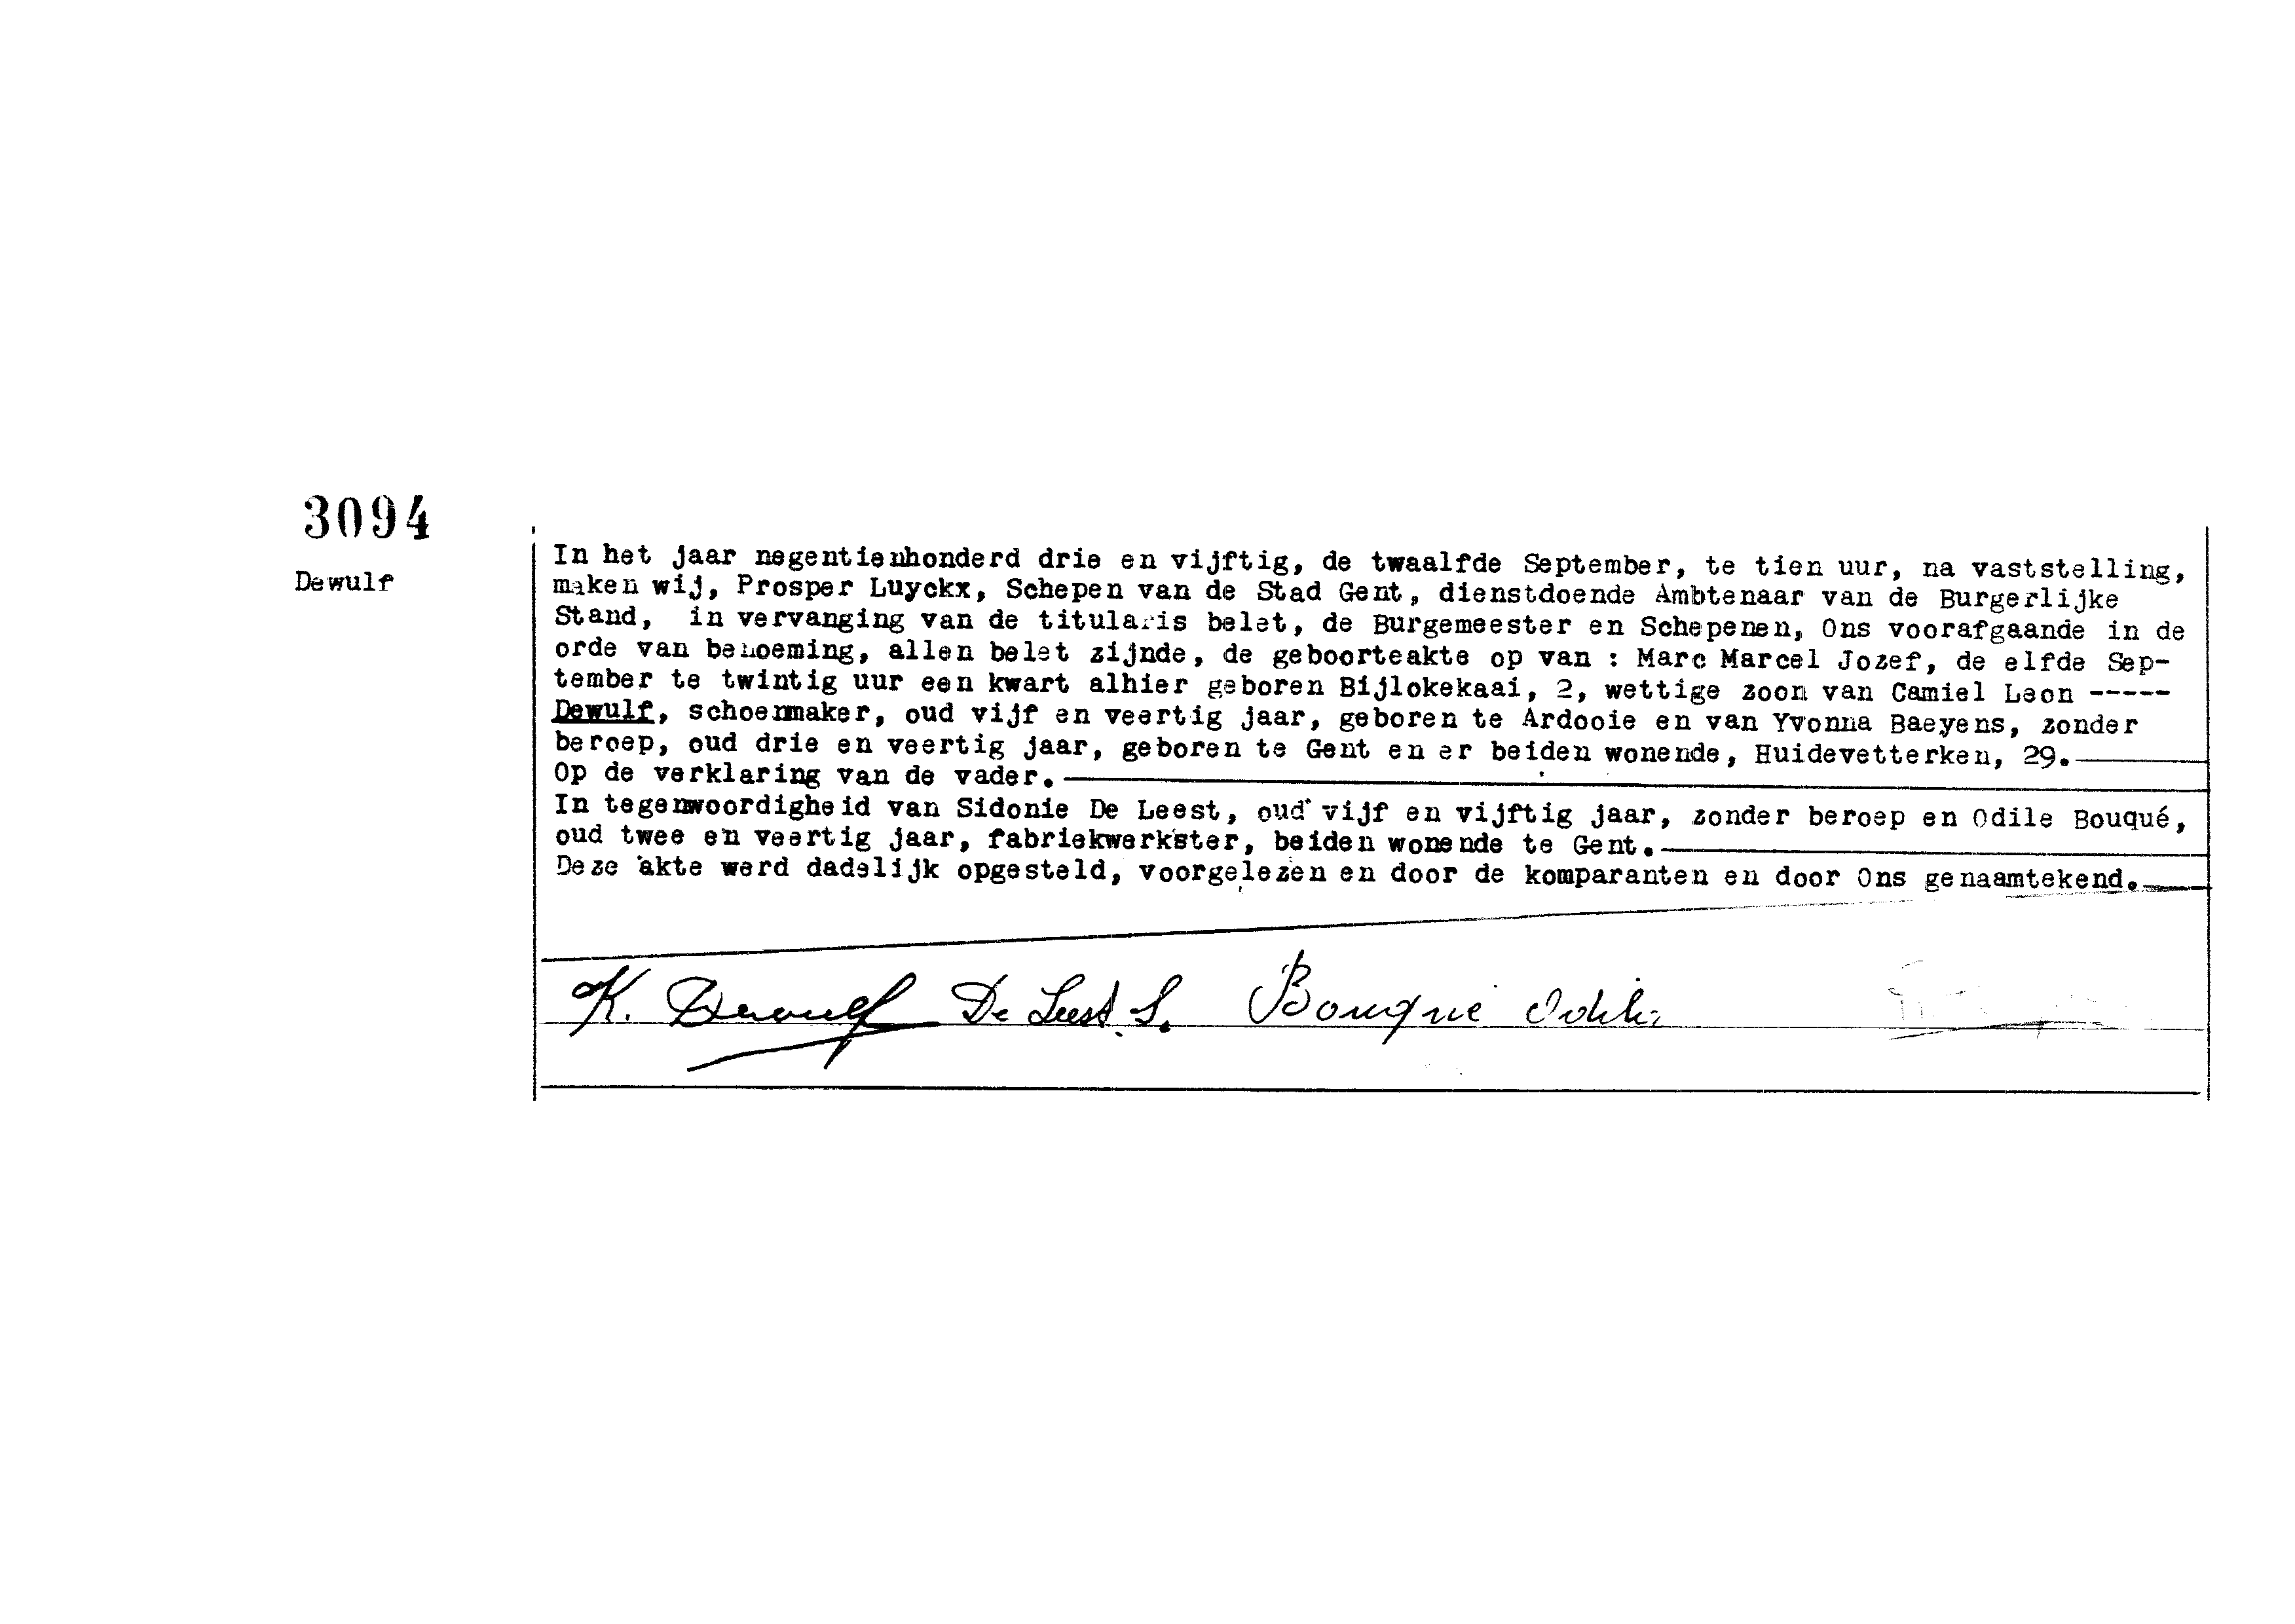 3094
Dewulf
In het jaar negentienhonderd drie en vijftig, de twaalfde September, te tien uur, na vaststelling,
maken wij, Prosper Luyckx, Schepen van de Stad Gent, dienstdoende Ambtenaar van de Burgerlijke
Stand, in vervanging van de titularis belet, de Burgemeester en Schepenen, Ons voorafgaande in de
orde van benoeming, allen belet zijnde, de geboorteakte op van : Marc Marcel Jozef, de elfde Sep-
tember te twintig uur een kwart alhier geboren Bijlokekaai, 2, wettige zoon van Camiel Leon -----
Dewulf, schoenmaker, oud vijf en veertig jaar, geboren te Ardooie en van Yvonna Baeyens, zonder
beroep, oud drie en veertig jaar, geboren te Gent en er beiden wonende, Huidevetterken, 29.
Op de verklaring van de vader.
In tegenwoordigheid van Sidonie De Leest, oud vijf en vijftig jaar, zonder beroep en Odile Bouqué,
oud twee en veertig jaar, fabriekwerkster, beiden wonende te Gent.
Deze akte werd dadelijk opgesteld, voorgelezen en door de komparanten en door Ons genaamtekend.
K. Dewulf De Leest. S. Bouqué Odile